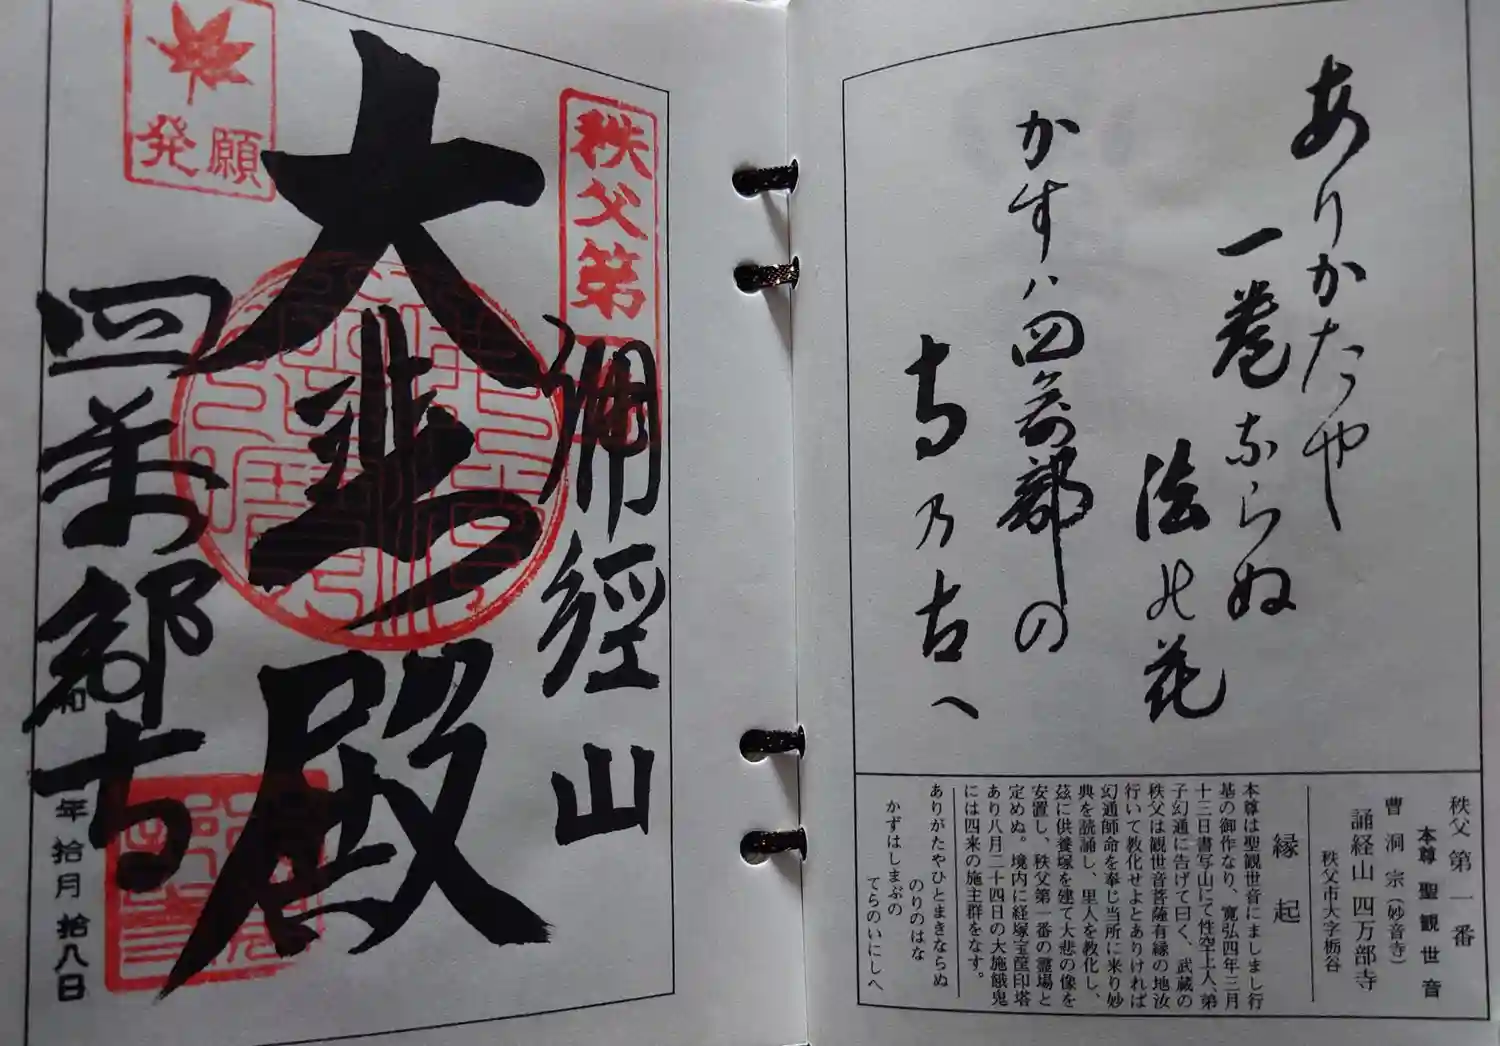 ありかたや
一巻ならぬ
法の花
かすハ四萬部の
寺乃古へ
秩父第一番
本尊 聖観世音
曹洞宗(妙音寺)
誦経山 四万部寺
秩父市大字栃谷
縁起
本尊は聖観世音にましまし行
基の御作なり、寛弘四年三月
十三日書写山にて性空上人、弟
子幻通に告げて曰く、武蔵の
秩父は観世音菩薩有縁の地汝
行いて教化せよとありければ
幻通師命を奉じ当所に来り妙
典を読誦し、里人を教化し、
茲に供養塚を建て大悲の像を
安置し、秩父第一番の霊場と
定めぬ。境内に経塚宝筐印塔
あり八月二十四日の大施餓鬼
には四来の施主群をなす。
ありがたやひとまきならぬ
のりのはな
かずはしまぶの
てらのいにしへ
秩父第
誦經山
大悲殿
発願
四萬部寺
和
年拾月拾八日